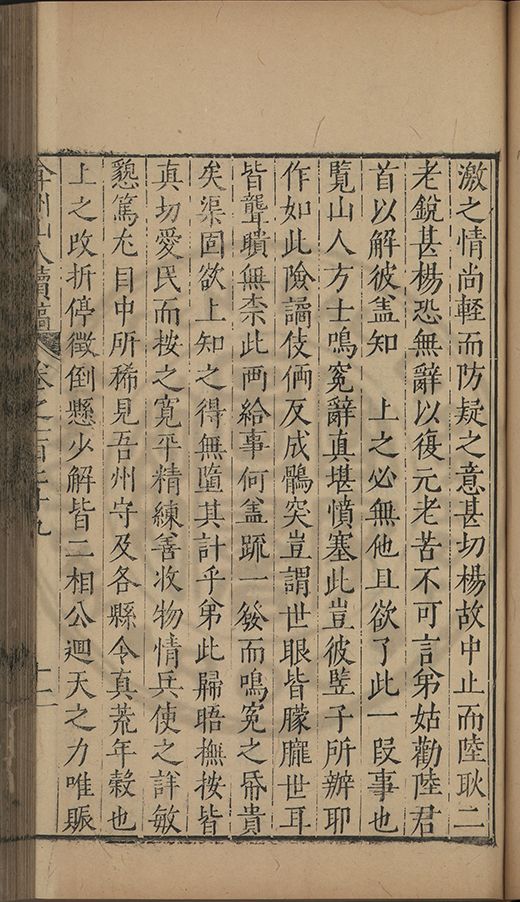 激之情尚輕而防疑之意甚切楊故中止而陸耿二
老銳甚楊恐無辭以復元老苦不可言弟姑勸陸君
首以解彼盖知　上之必無他且欲了此一段事也
覽山人方士鳴寃辭真堪憤塞此豈彼豎子所辦耶
作如此險譎伎倆反成鶻突豈謂世眼皆朦朧世耳
皆聾聵無柰此両給事何盖疏一發而鳴寃之帋貴
矣渠固欲上知之得無墮其計乎弟此歸晤撫按皆
真切愛民而按之寬平精練善收物情兵使之詳敏
懇篤尤目中所稀見吾州守及各縣令真荒年穀也
上之改折停徵倒懸少解皆二相公迴天之力唯賑
弇州山人續稿　卷之一百七十九　十二